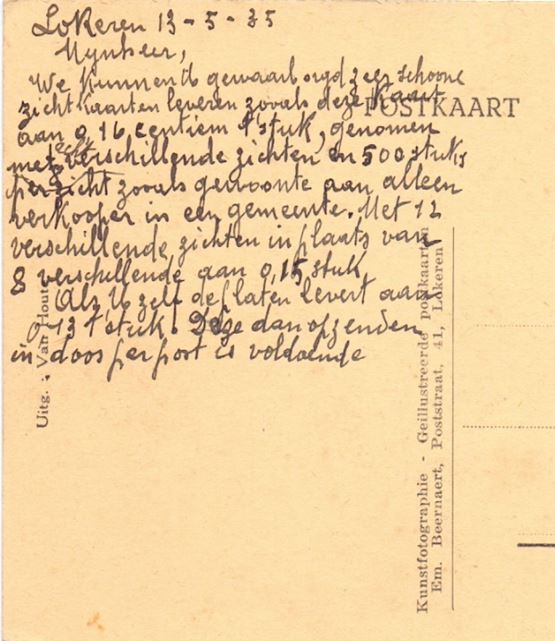 Lokeren 13-5-35
Mynheer,
We kunnen U gewaarborgd zeer schoone
zichtkaarten leveren zooals deze kaart
aan 0,16 centiem 't stuk, genomen
met acht verschillende zichten en 500 stuks
per zicht zooals gewoonte aan alleen
verkooper in een gemeente. Met 12
verschillende zichten in plaats van
8 verschillende aan 0,15 stuk
Als U zelf de platen levert aan
0-13 't stuk. Deze dan opzenden
in doos per post is voldoende
POSTKAART
Uitg. : Van Houte
Kunstfotographie - Geillustreerde postkaarten
Em. Beernaert, Poststraat, 41, Lokeren